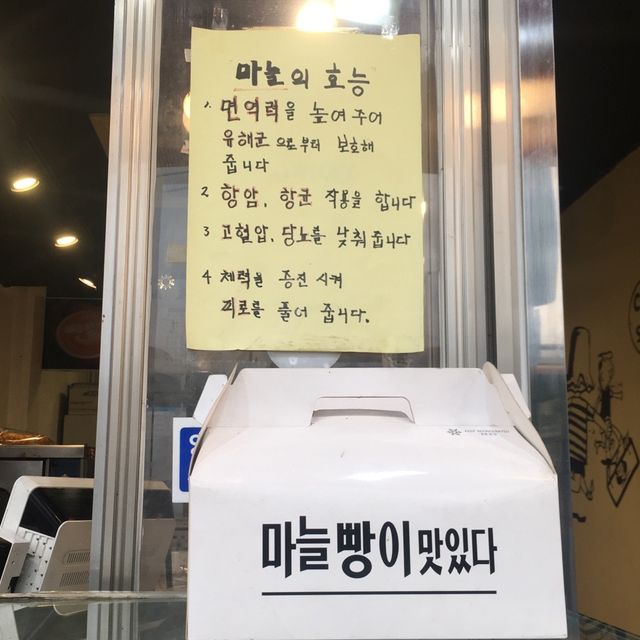 마늘의 효능
1. 면역력을 높여주어
유해균으로부터 보호해
줍니다
2 항암, 항균 작용을 합니다
3 고혈압, 당뇨를 낮춰줍니다
4 체력을 증진 시켜
피로를 풀어 줍니다.
마늘빵이맛있다